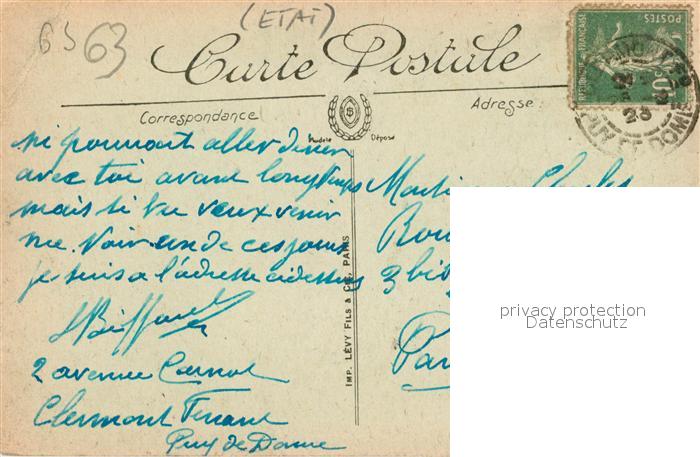 63 63
(ETAT)
Carte Postale
Correspondance
Adresse:
Modèle Déposé
REPUBLIQUE FRANÇAISE
POSTES
10c
23
PUY DE DOME
ni pourront aller diner
avec toi avant longtemps
mais si tu veux venir
me voir un de ces jours
je suis a l'adresse cidessus
2 avenue Carnot
Clermont Ferrand
Puy de Dome
IMP. LÉVY FILS & CIE, PARIS
Monsieur Charles
Rou
3 bis
Par
privacy protection
Datenschutz